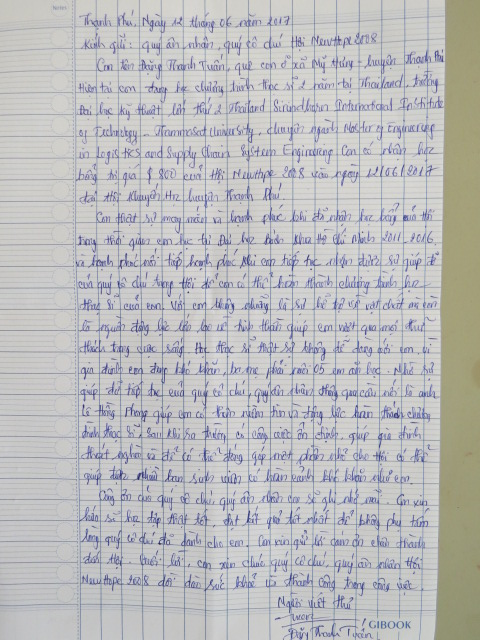 Thạnh Phú, Ngày 12 tháng 06 năm 2017
Kính gửi: quý ân nhân, quý cô chú Hội NewHope 2008
Con tên Đặng Thanh Tuấn, quê con ở xã Mỹ Hưng - huyện Thạnh Phú
Hiện tại con đang học chương trình thạc sĩ 2 năm tại Thailand, trường
Đại học kỹ thuật lớn thứ 2 Thailand Sirindhorn International Institute
of Technology - Thammasat University, chuyên ngành Master of Engineering
in Logistics and Supply Chain System Engineering. Con có nhận học
bổng trị giá $ 800 của Hội NewHope 2008 vào ngày 12/06/2017
ở Hội Khuyến Học huyện Thạnh Phú.
Con thật sự may mắn và hạnh phúc khi đã nhận học bổng của Hội
trong thời gian con học tại Đại học Bách Khoa Hồ Chí Minh 2011-2016
và hạnh phúc nối tiếp hạnh phúc khi con tiếp tục nhận được sự giúp đỡ
của quý cô chú trong Hội để con có thể hoàn thành chương trình học
thạc sĩ của con. Với con không những là sự hỗ trợ về vật chất mà còn
là nguồn động lực lớn lao về tinh thần giúp con vượt qua mọi thử
thách trong cuộc sống. Học thạc sĩ thật sự không dễ dàng với con, vì
gia đình con đang khó khăn, ba mẹ phải nuôi 05 em ăn học. Nhờ sự
giúp đỡ tiếp tục của quý cô chú, quý ân nhân thông qua cầu nối là anh
Lê Hồng Phong giúp con có thêm niềm tin và động lực hoàn thành chương
trình thạc sĩ, sau khi ra trường có công việc ổn định, giúp gia đình
thoát nghèo và để có thể đóng góp một phần nhỏ cho Hội có thể
giúp được nhiều bạn sinh viên có hoàn cảnh khó khăn như con.
Công ơn của quý cô chú, quý ân nhân con sẽ ghi nhớ mãi. Con xin
hứa sẽ học tập thật tốt, đạt kết quả tốt nhất để không phụ tấm
lòng quý cô chú đã dành cho con. Con xin gửi lời cảm ơn chân thành
đến Hội. Cuối lời, con xin chúc quý cô chú, quý ân nhân Hội
NewHope 2008 dồi dào sức khoẻ và thành công trong công việc.
Người viết thư
Tuấn
Đặng Thanh Tuấn
GIBOOK